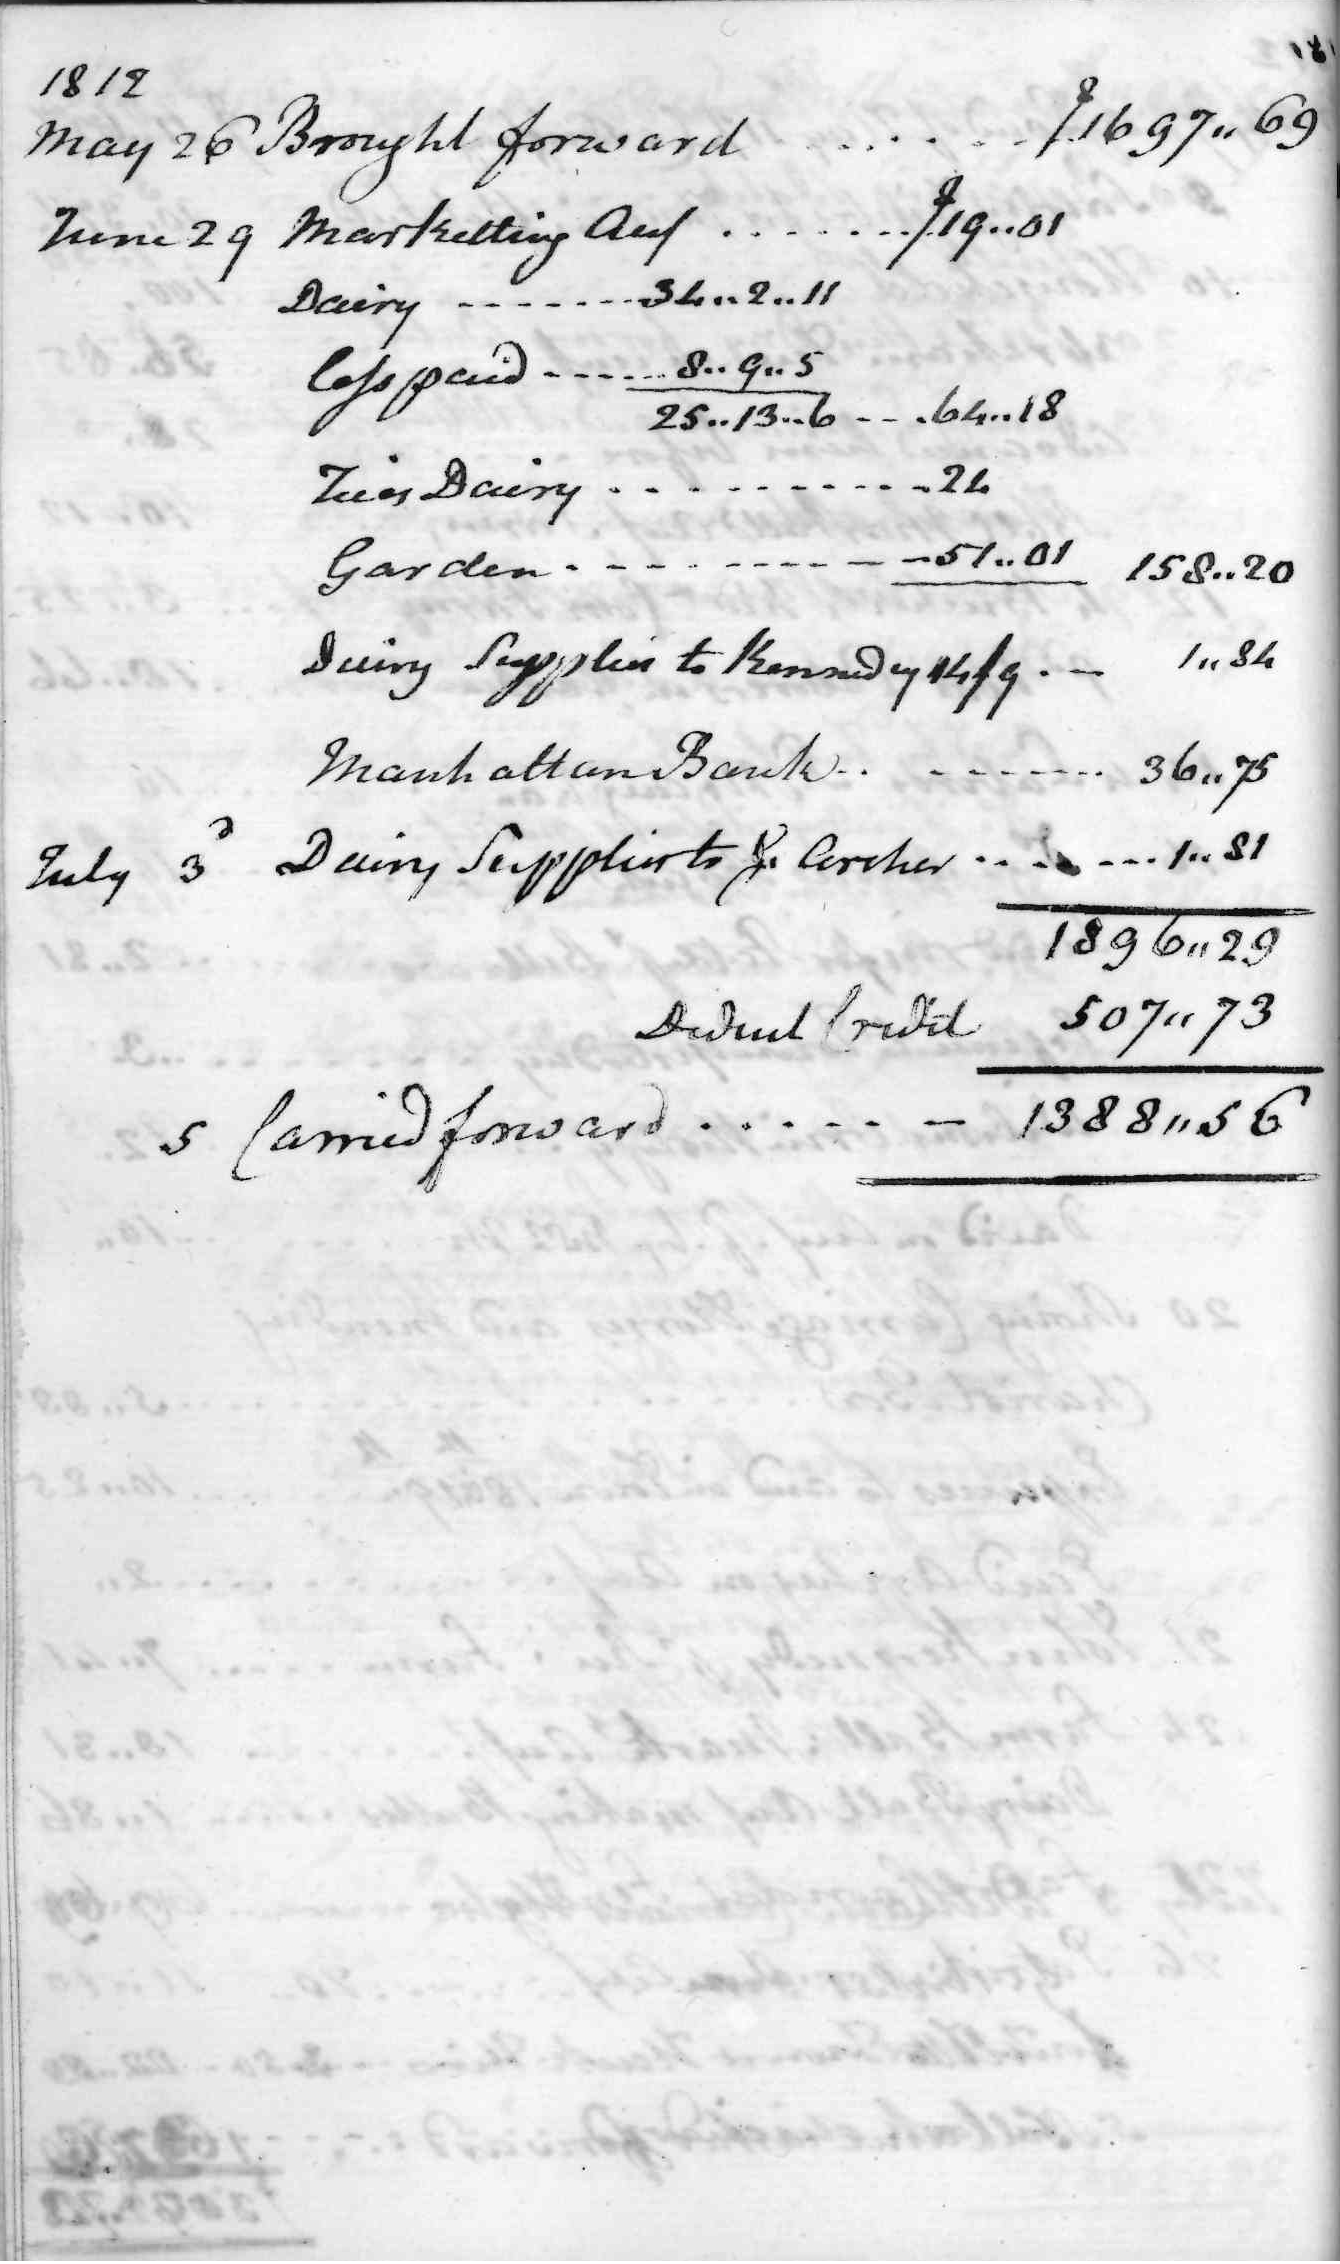 1812
May 26 Brought forward . . . . . . $1697,,69
June 29 Marketting Acct . . . . . . . $19..01
Dairy - - - - - - - 34..2..11
less paid - - - - - 8..9..5
25..13..6 - - . 64..18
Dairy . . . . . . . . . . 24
Garden . - - - - - - - - 51..01 158..20
Dairy Supplies to Kennedy 14/9 . - - 1,,84
Manhattan Bank . . - - - - - - 36,,75
July 3d Dairy Supplies to J. Archer . . . . - - - 1..81
1896,,29
Deduct Credit 507,,73
5 Carried forward . . . . . - - 1388,,56